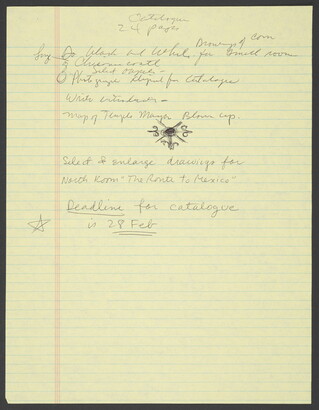 Catalogue
24 pages
Drawings of corn
Do black and White for Small room
of Chicomecoatl
Select Objects -
Photograph Objects for Catalogue
Write introduction -
Map of Templo Mayor Blown up.
Select & enlarge drawings for
North Room "The Route to Mexico"
Deadline for catalogue
is 28 Feb